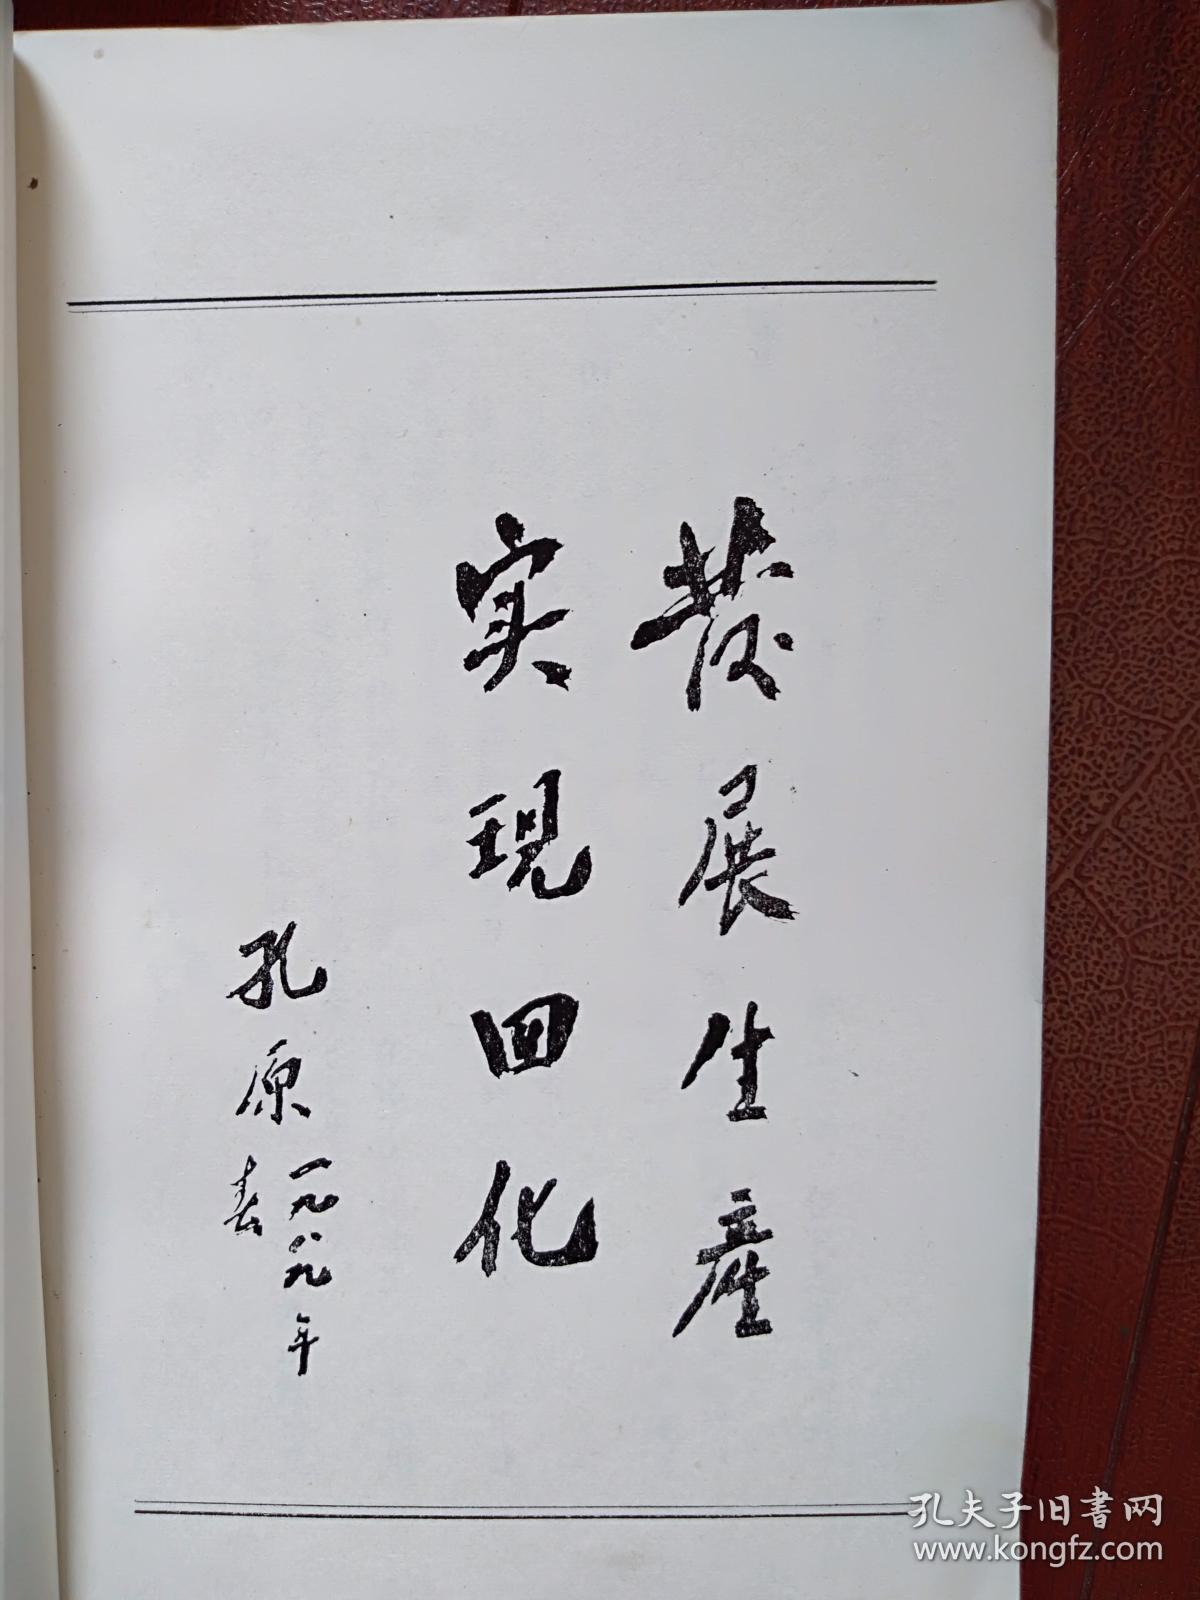 發展生產
实現四化
孔原
一九八九年
春
孔夫子旧書网
www.kongfz.com